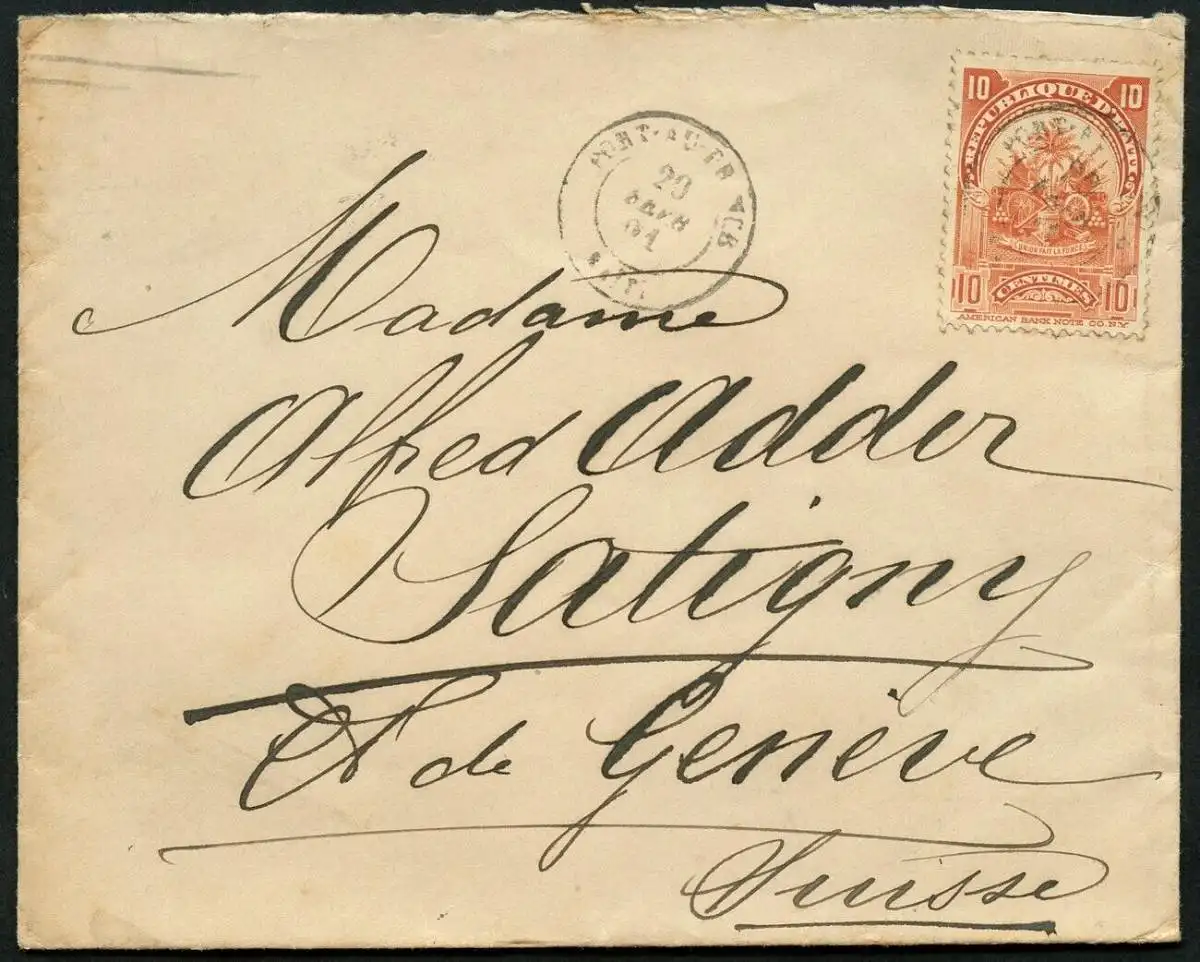 10 10
REPUBLIQUE D'HAITI
L'UNION FAIT LA FORCE
10 CENTIMES 10
AMERICAN BANK NOTE CO. N.Y.
PORT-AU-PRINCE
20
01
HAITI
Madame
Alfred Addor
Satigny
Ct de Genève
Suisse